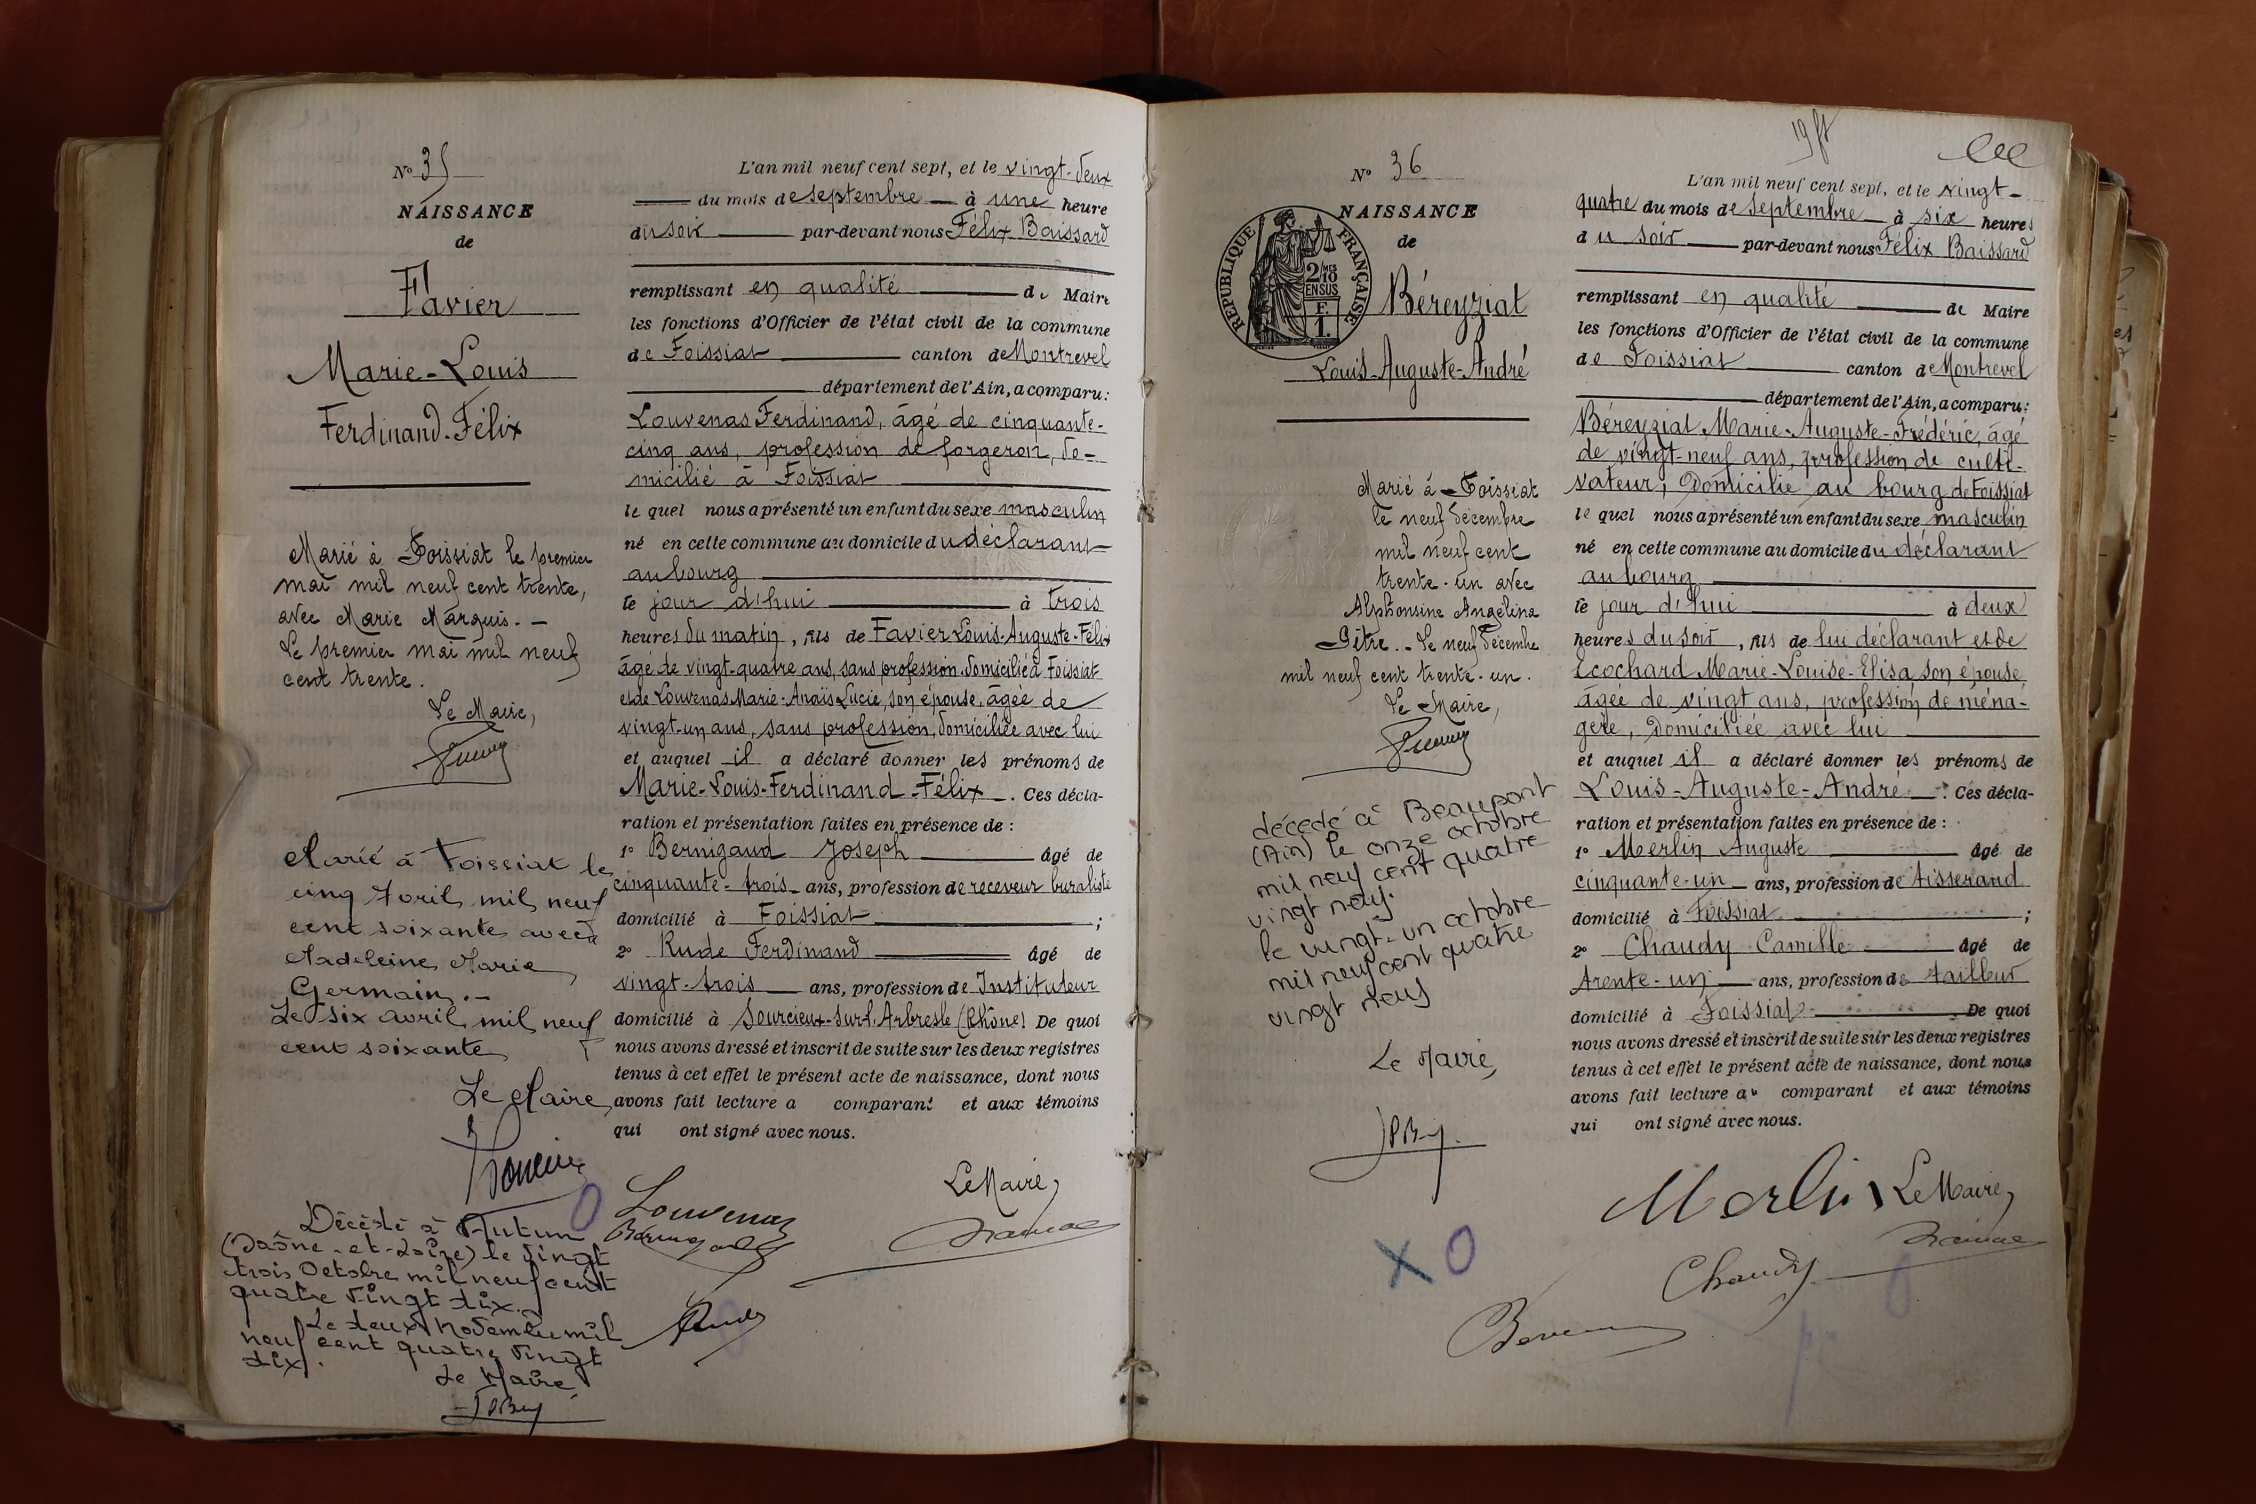 N° 35
NAISSANCE
de
Favier
Marie-Louis
Ferdinand-Félix
Marié à Foissiat le premier
mai mil neuf cent trente,
avec Marie Marguis. -
Le premier mai mil neuf
cent trente.
Le Maire,
Marié à Foissiat le
cinq Avril mil neuf
cent soixante avec
Madeleine Marie
Germain. -
Le six avril mil neuf
cent soixante
Le Maire,
Décédé à Autun
(Saône-et-Loire) le vingt
trois Octobre mil neuf cent
quatre vingt dix.
Le deux Novembre mil
neuf cent quatre vingt
dix.
Le Maire,
L'an mil neuf cent sept, et le vingt-deux
du mois de septembre à une heure
du soir par-devant nous Félix Baissard
remplissant en qualité de Maire
les fonctions d'Officier de l'état civil de la commune
de Foissiat canton de Montrevel
département de l'Ain, a comparu:
Louvenas Ferdinand, âgé de cinquante-
cinq ans, profession de forgeron, do-
micilié à Foissiat
le quel nous a présenté un enfant du sexe masculin
né en cette commune au domicile du déclarant
au bourg
le jour d'hui à trois
heures du matin, fils de Favier Louis-Auguste-Félix
âgé de vingt-quatre ans, sans profession domicilié à Foissiat
et de Louvenas Marie-Anaïs Lucie, son épouse, âgée de
vingt-un ans, sans profession, domiciliée avec lui
et auquel il a déclaré donner les prénoms de
Marie-Louis-Ferdinand-Félix. Ces décla-
ration et présentation faites en présence de :
1° Bernigaud Joseph âgé de
cinquante-trois ans, profession de receveur buraliste
domicilié à Foissiat ;
2° Rude Ferdinand âgé de
vingt-trois ans, profession de Instituteur
domicilié à Sourcieux-sur-l'Arbresle (Rhône) De quoi
nous avons dressé et inscrit de suite sur les deux registres
tenus à cet effet le présent acte de naissance, dont nous
avons fait lecture a comparant et aux témoins
qui ont signé avec nous.
Louvenas
Le Maire,
Rude
N° 36
NAISSANCE
de
RÉPUBLIQUE FRANÇAISE
2/10 MES
EN SUS
F.
1.
Béreyziat
Louis-Auguste-André
Marié à Foissiat
le neuf décembre
mil neuf cent
trente-un avec
Alphonsine Angelina
Gître. - Le neuf décembre
mil neuf cent trente-un.
Le Maire,
décédé à Beaupont
(Ain) le onze octobre
mil neuf cent quatre
vingt neuf.
le vingt-un octobre
mil neuf cent quatre
vingt neuf
Le Maire,
L'an mil neuf cent sept, et le vingt-
quatre du mois de septembre à six heures
du soir par-devant nous Félix Baissard
remplissant en qualité de Maire
les fonctions d'Officier de l'état civil de la commune
de Foissiat canton de Montrevel
département de l'Ain, a comparu:
Béreyziat Marie-Auguste-Frédéric, âgé
de vingt-neuf ans, profession de culti-
vateur, domicilié au bourg de Foissiat
le quel nous a présenté un enfant du sexe masculin
né en cette commune au domicile du déclarant
au bourg
le jour d'hui à deux
heures du soir, fils de lui déclarant et de
Ecochard Marie-Louise-Elisa son épouse,
âgée de vingt ans, profession de ména-
gère, domiciliée avec lui
et auquel il a déclaré donner les prénoms de
Louis-Auguste-André. Ces décla-
ration et présentation faites en présence de :
1° Merlin Auguste âgé de
cinquante-un ans, profession de tisserand
domicilié à Foissiat ;
2° Chaudy Camille âgé de
trente-un ans, profession de tailleur
domicilié à Foissiat De quoi
nous avons dressé et inscrit de suite sur les deux registres
tenus à cet effet le présent acte de naissance, dont nous
avons fait lecture au comparant et aux témoins
qui ont signé avec nous.
Merlin
Le Maire,
Chaudy